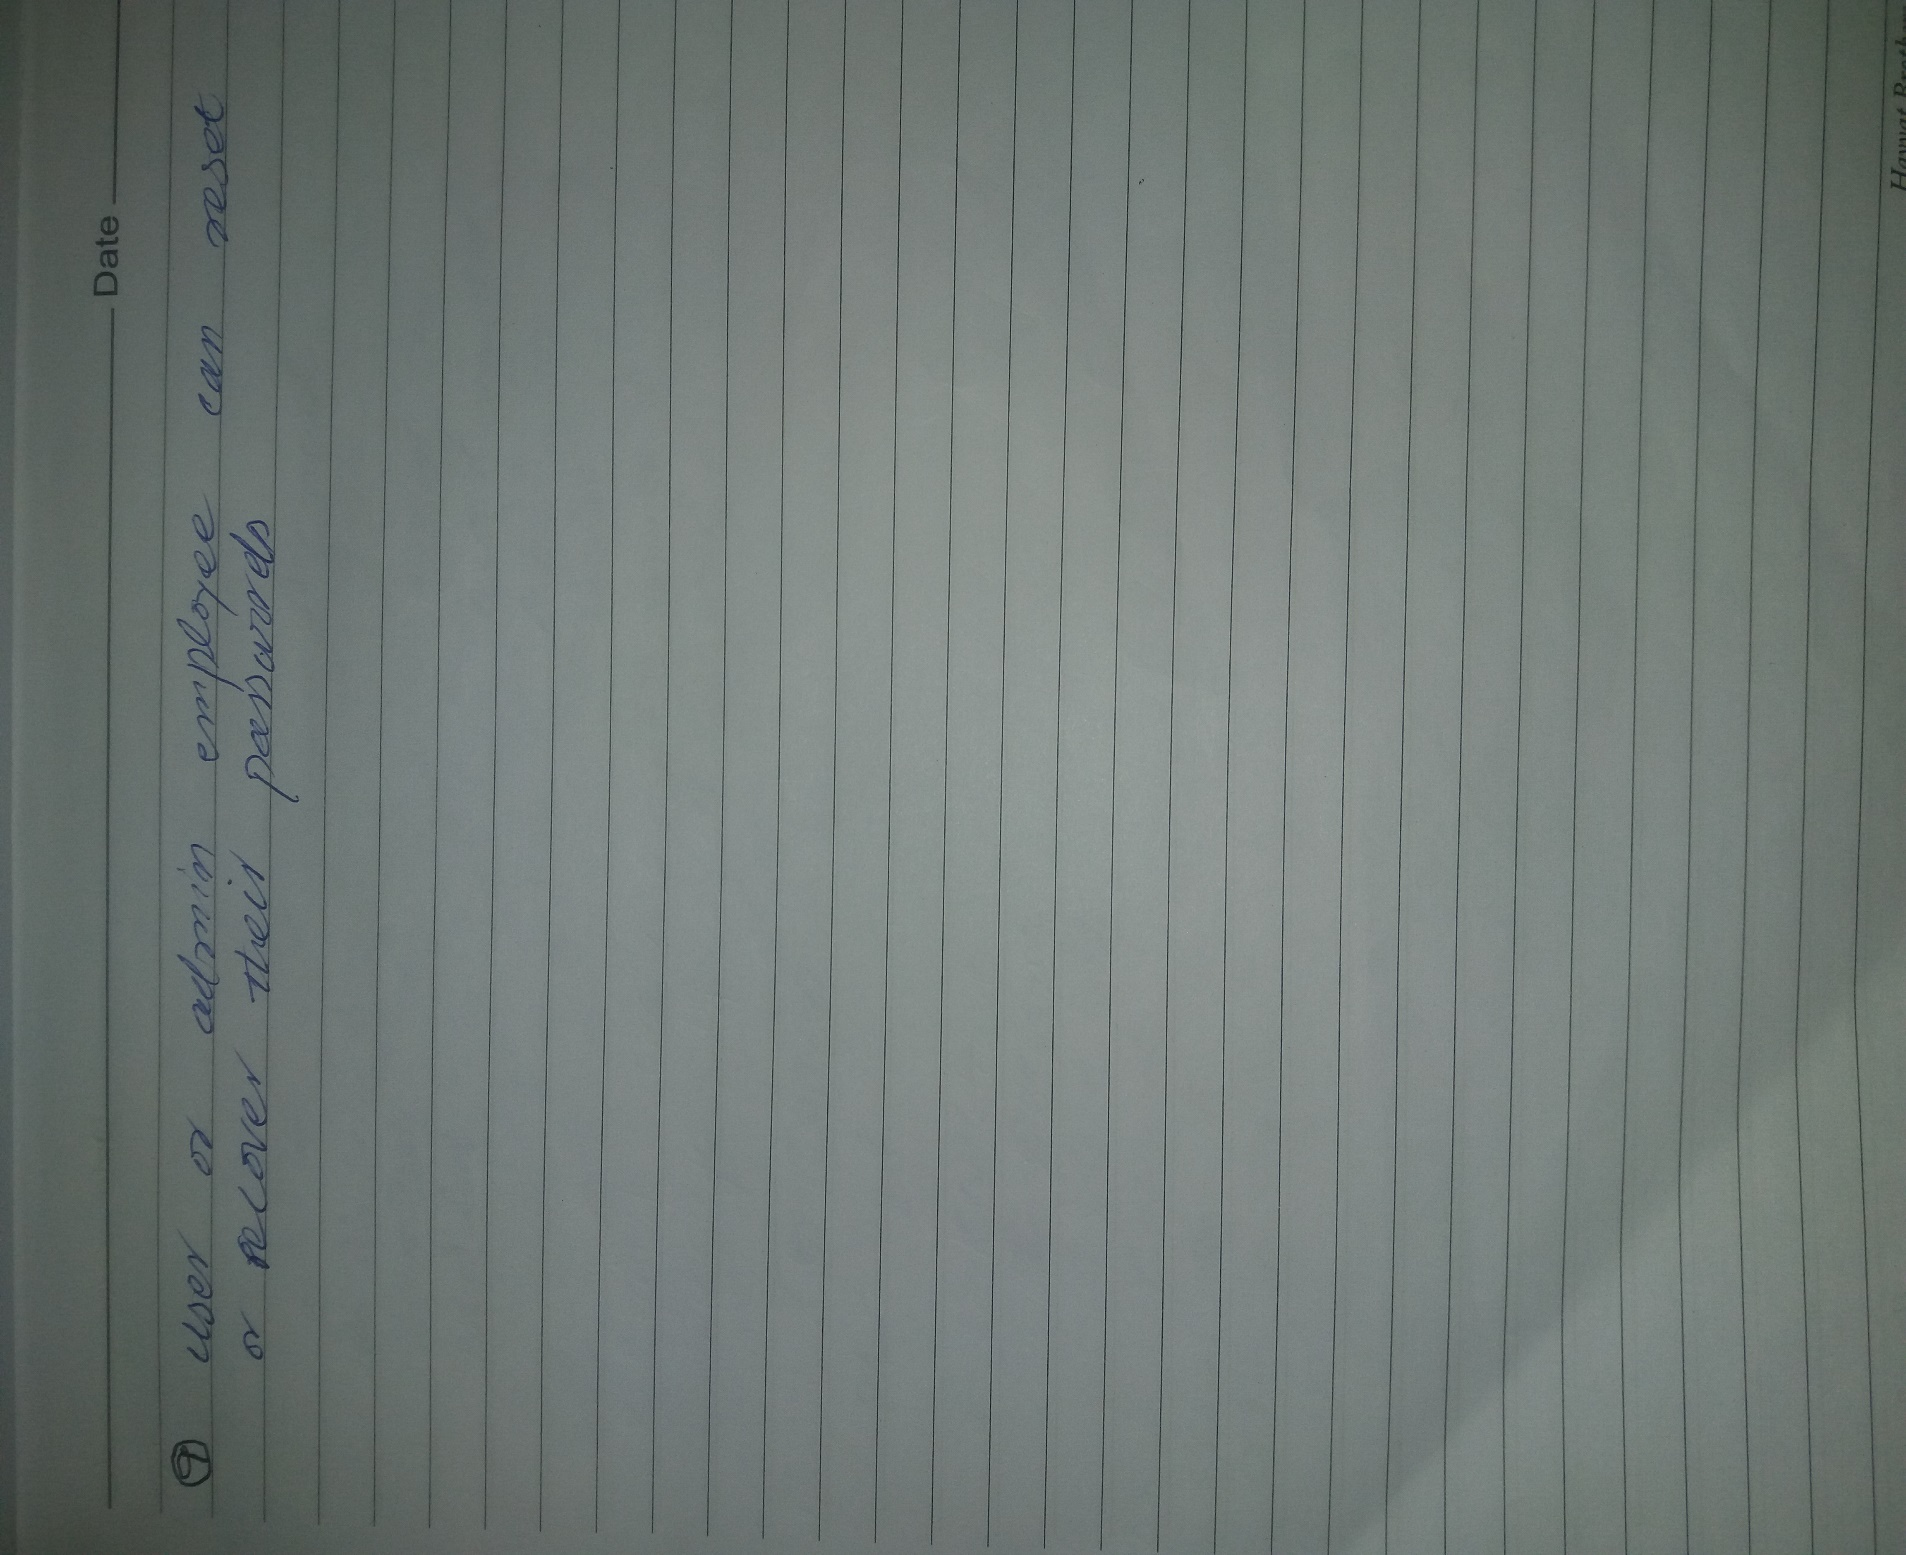 Date
9 user or admin employee can reset
or recover their passwords
Hayyat Brothers